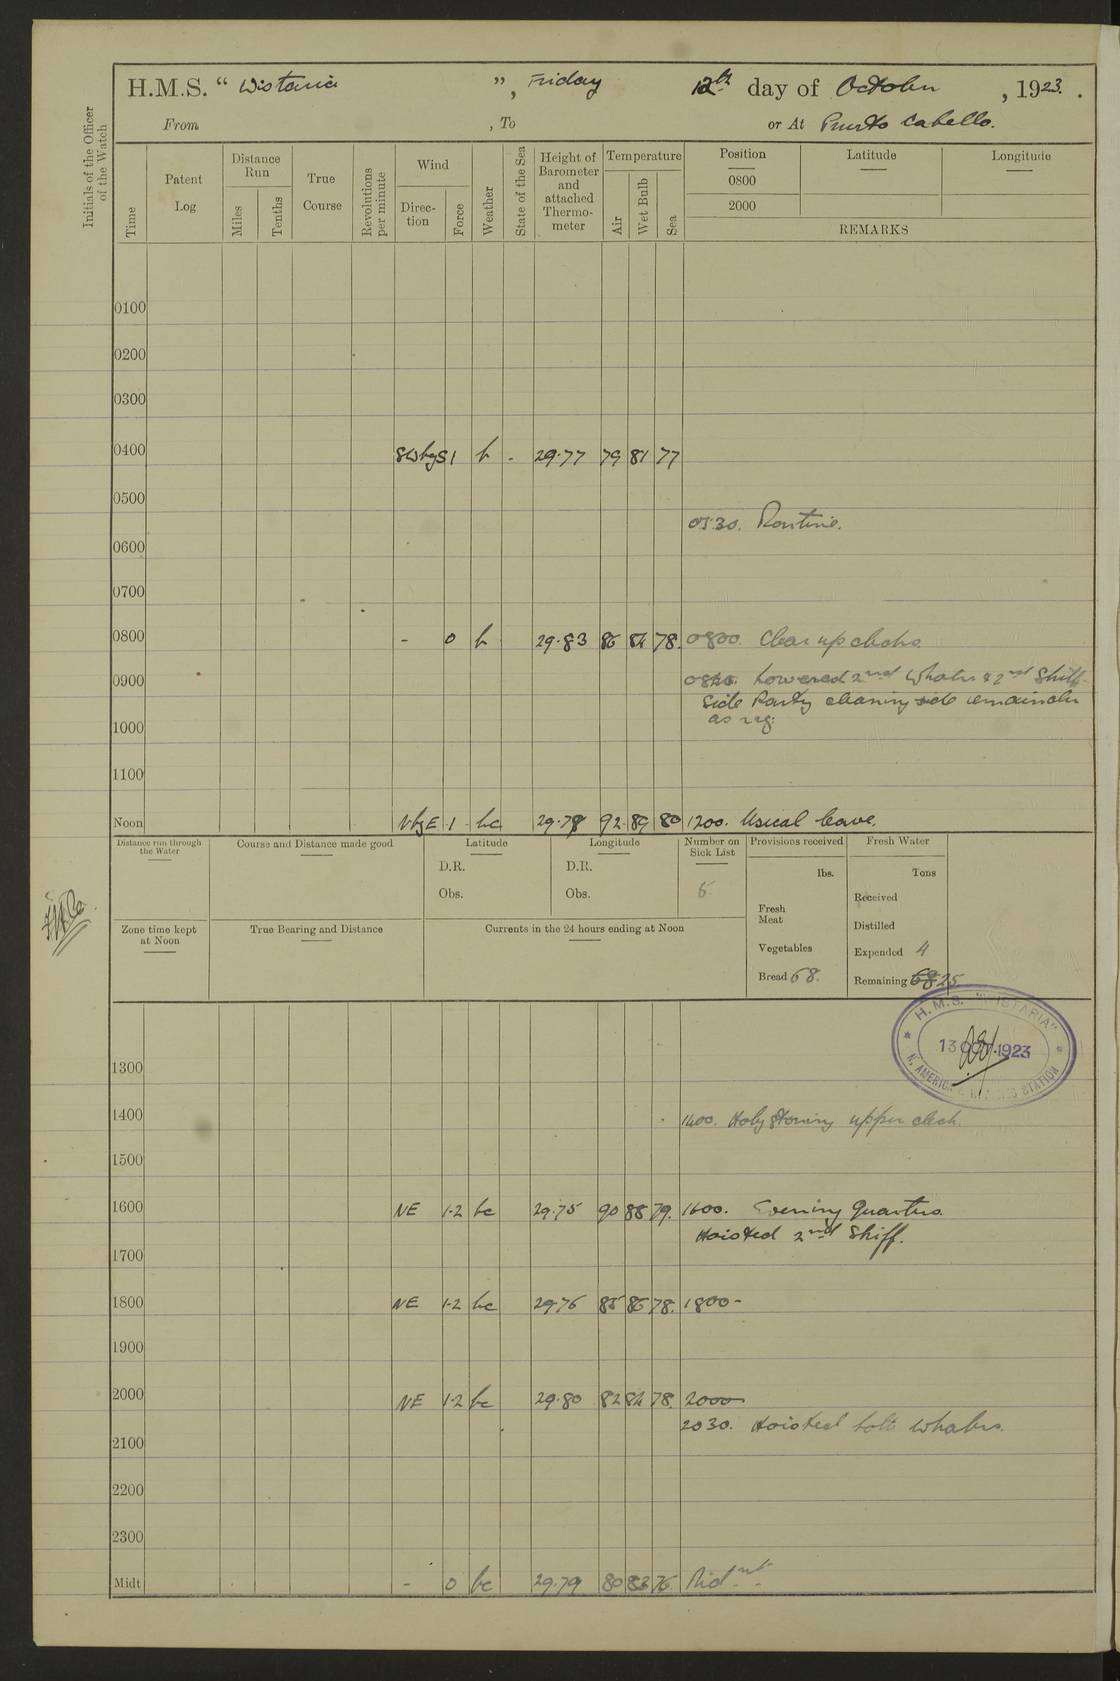 H.M.S. “ Wistaria ”, Friday 12th day of October, 1923.
From , To or At Puerto Cabello.
Initials of the Officer of the Watch
Time
Patent Log
Distance Run
Miles
Tenths
True Course
Revolutions per minute
Wind
Direc-tion
Force
Weather
State of the Sea
Height of Barometer and attached Thermo-meter
Temperature
Air
Wet Bulb
Sea
Position Latitude Longitude
0800
2000
REMARKS
0100
0200
0300
0400 SWbyS 1 b - 29.77 79 81 77
0500
0530. Routine.
0600
0700
0800 - 0 b 29.83 86 84 78. 0800. Clear up decks.
0900
0840. Lowered 2nd Whaler & 2nd Skiff
Side Party cleaning side remainder
as req.
1000
1100
Noon NbyE 1 bc 29.78 92 89 80 1200. Usual leave.
Distance run through the Water
Course and Distance made good
Latitude
D.R.
Obs.
Longitude
D.R.
Obs.
Number on Sick List
5.
Provisions received
lbs.
Fresh Meat
Vegetables
Bread 68.
Fresh Water
Tons
Received
Distilled
Expended 4
Remaining 68 25.
Zone time kept at Noon
True Bearing and Distance
Currents in the 24 hours ending at Noon
H.M.S. "WISTARIA"
13 OCT 1923
N. AMERICA & W. INDIES STATION
1300
1400 1400. Holystoning upper deck.
1500
1600 NE 1-2 bc 29.75 90 88 79. 1600. Evening Quarters.
Hoisted 2nd Skiff.
1700
1800 NE 1-2 bc 29.76 85 86 78. 1800-
1900
2000 NE 1-2 bc 29.80 82 84 78. 2000
2030. Hoisted both whalers.
2100
2200
2300
Midt - 0 bc 29.79 80 83 76. Midnt.